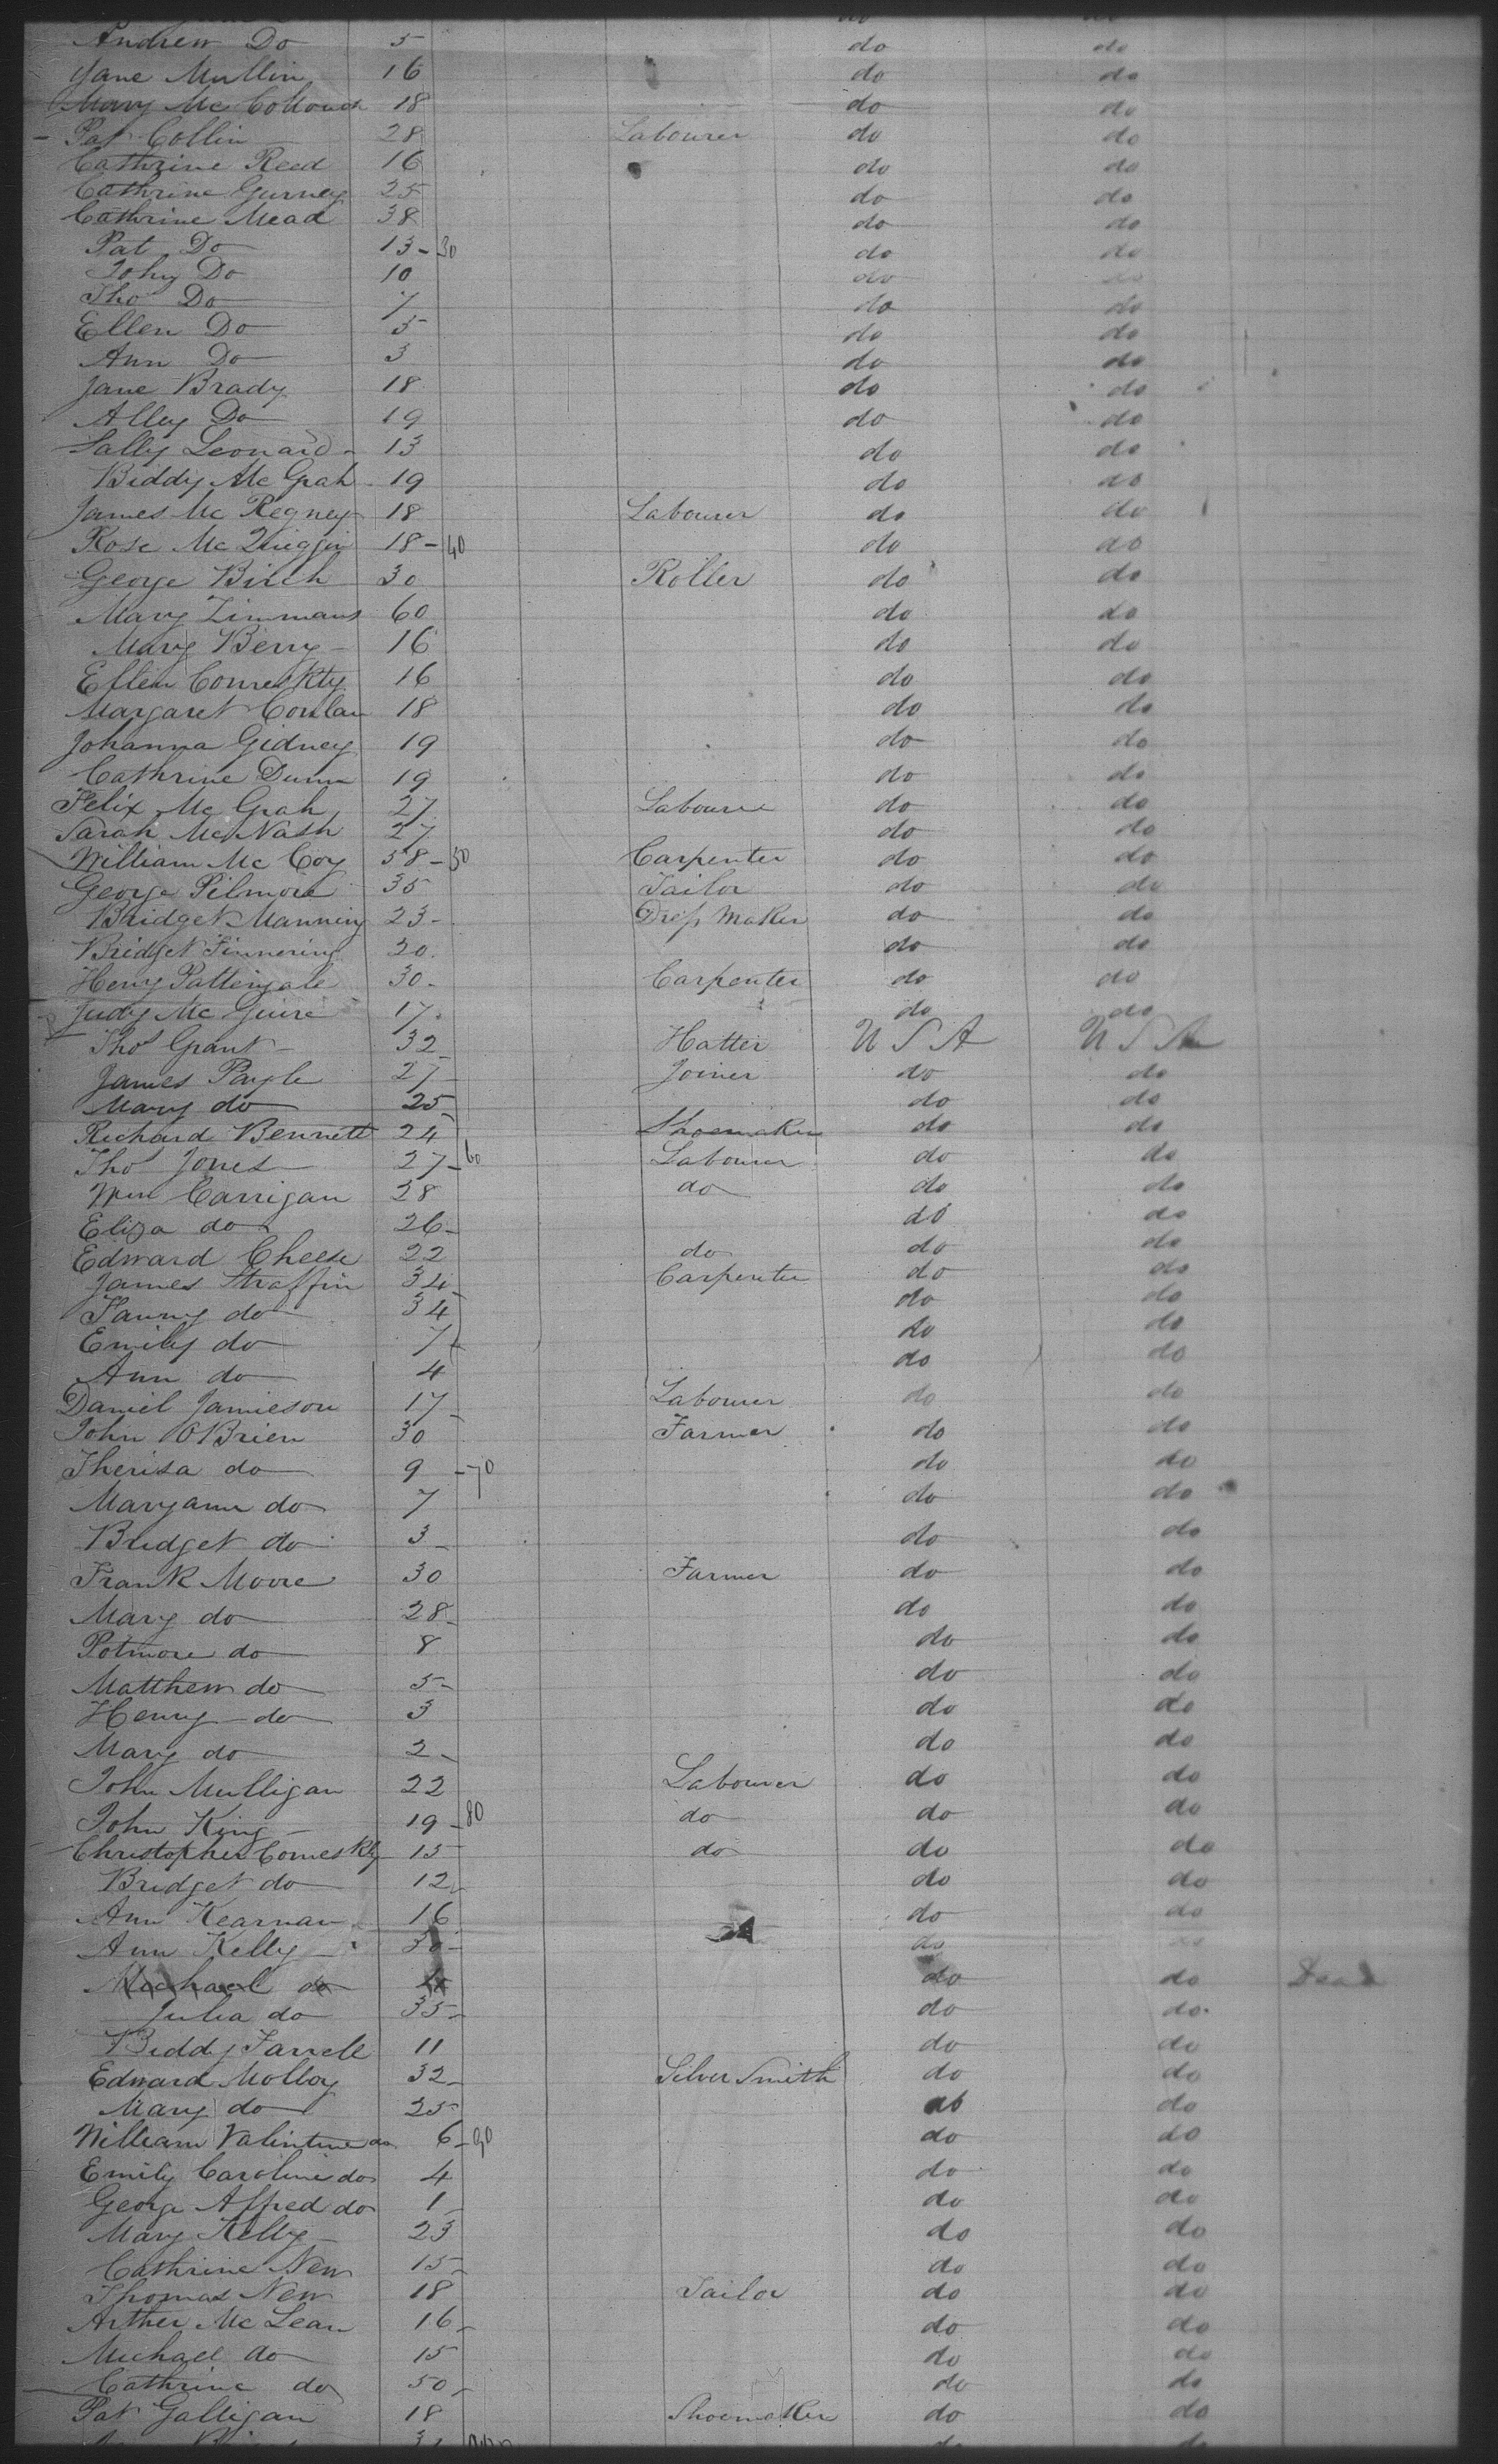 Andrew Do 5 do do
Jane Mullin 16 do do
Mary Mc Collouch 18 do do
Pat Collin 28 Labourer do do
Cathrine Reed 16 do do
Cathrine Gurney 25 do do
Cathrine Mead 38 do do
Pat Do 13 - 30 do do
John Do 10 do do
Tho Do 7 do do
Ellen Do 5 do do
Ann Do 3 do do
Jane Brady 18 do do
Alley Do 19 do do
Sally Leonard - 13 do do
Biddy Mc Grah 19 do do
James Mc Regney 18 Labourer do do
Rose Mc Quiggin 18 - 40 do do
George Birch 30 Roller do do
Mary Timmans 60 do do
Mary Berry - 16 do do
Ellen Comeskty 16 do do
Margaret Conlan 18 do do
Johanna Gidney 19 do do
Cathrine Dunn 19 do do
Felix Mc Grah 27 Labourer do do
Sarah Mc Nash 27 do do
William Mc Coy 38 - 50 Carpenter do do
George Pilmore 35 Tailor do do
Bridget Manning 23 - Dress Maker do do
Bridget Finnering 20 do do
Henry Pattingale 30 - Carpenter do do
Judy Mc Guire 17 do do
Tho Grant - 32 Hatter U S A U S A
James Pagle 27 - Joiner do do
Mary do 25 - do do
Richard Bennett 24 Shoemaker do do
Tho Jones 27 - 60 Labourer do do
Wm Carrigan 28 do do do
Eliza do 26 - do do
Edward Cheese 22 do do do
James Straffin 34 Carpenter do do
Fanny do 34 do do
Emily do 7 do do
Ann do 4 do do
Daniel Jamieson 17 - Labourer do do
John OBrien 30 Farmer do do
Therisa do 9 - 70 do do
Maryann do 7 do do
Bridget do 3 - do do
Frank Moore 30 Farmer do do
Mary do 28 - do do
Potmore do 8 do do
Matthew do 5 - do do
Henry do 3 do do
Mary do 2 - do do
John Mulligan 22 Labourer do do
John King - 19 - 80 do do do
Christopher Comeskty 15 do do do
Bridget do 12 - do do
Ann Kearnan 16 do do
Ann Kelly - 30 - do do
Michael do do do Dead
Julia do 35 - do do
Biddy Farrell 11 do do
Edward Molloy 32 - Silver Smith do do
Mary do 25 do do
William Valintine do 6 - 90 do do
Emily Caroline do 4 do do
George Alfred do 1 - do do
Mary Kelly - 23 do do
Cathrine New 15 - do do
Thomas New 18 Tailor do do
Arther Mc Lean 16 - do do
Michael do 15 do do
Cathrine do 50 - do do
Pat Galligan 18 Shoemaker do do